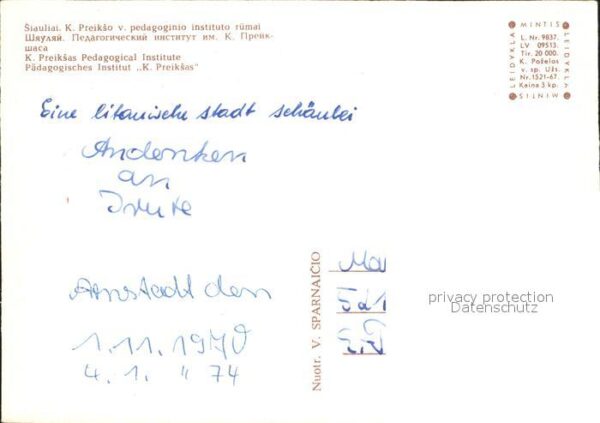 Šiauliai. K. Preikšo v. pedagoginio instituto rūmai
Шяуляй. Педагогический институт им. К. Прейк-
шаса
K. Preikšas Pedagogical Institute
Pädagogisches Institut „K. Preikšas"
LEIDYKLA MINTIS LEIDYKLA MINTIS
L. Nr. 9837.
LV 09513.
Tir. 20 000.
K. Poželos
v. sp. Užs.
Nr. 1521-67.
Kaina 3 kp.
Eine litauische stadt schaulei
Andenken
an
Irute
Arnstadt den
1.11.1970
4.1. " 74
Nuotr. V. SPARNAIČIO
privacy protection
Datenschutz